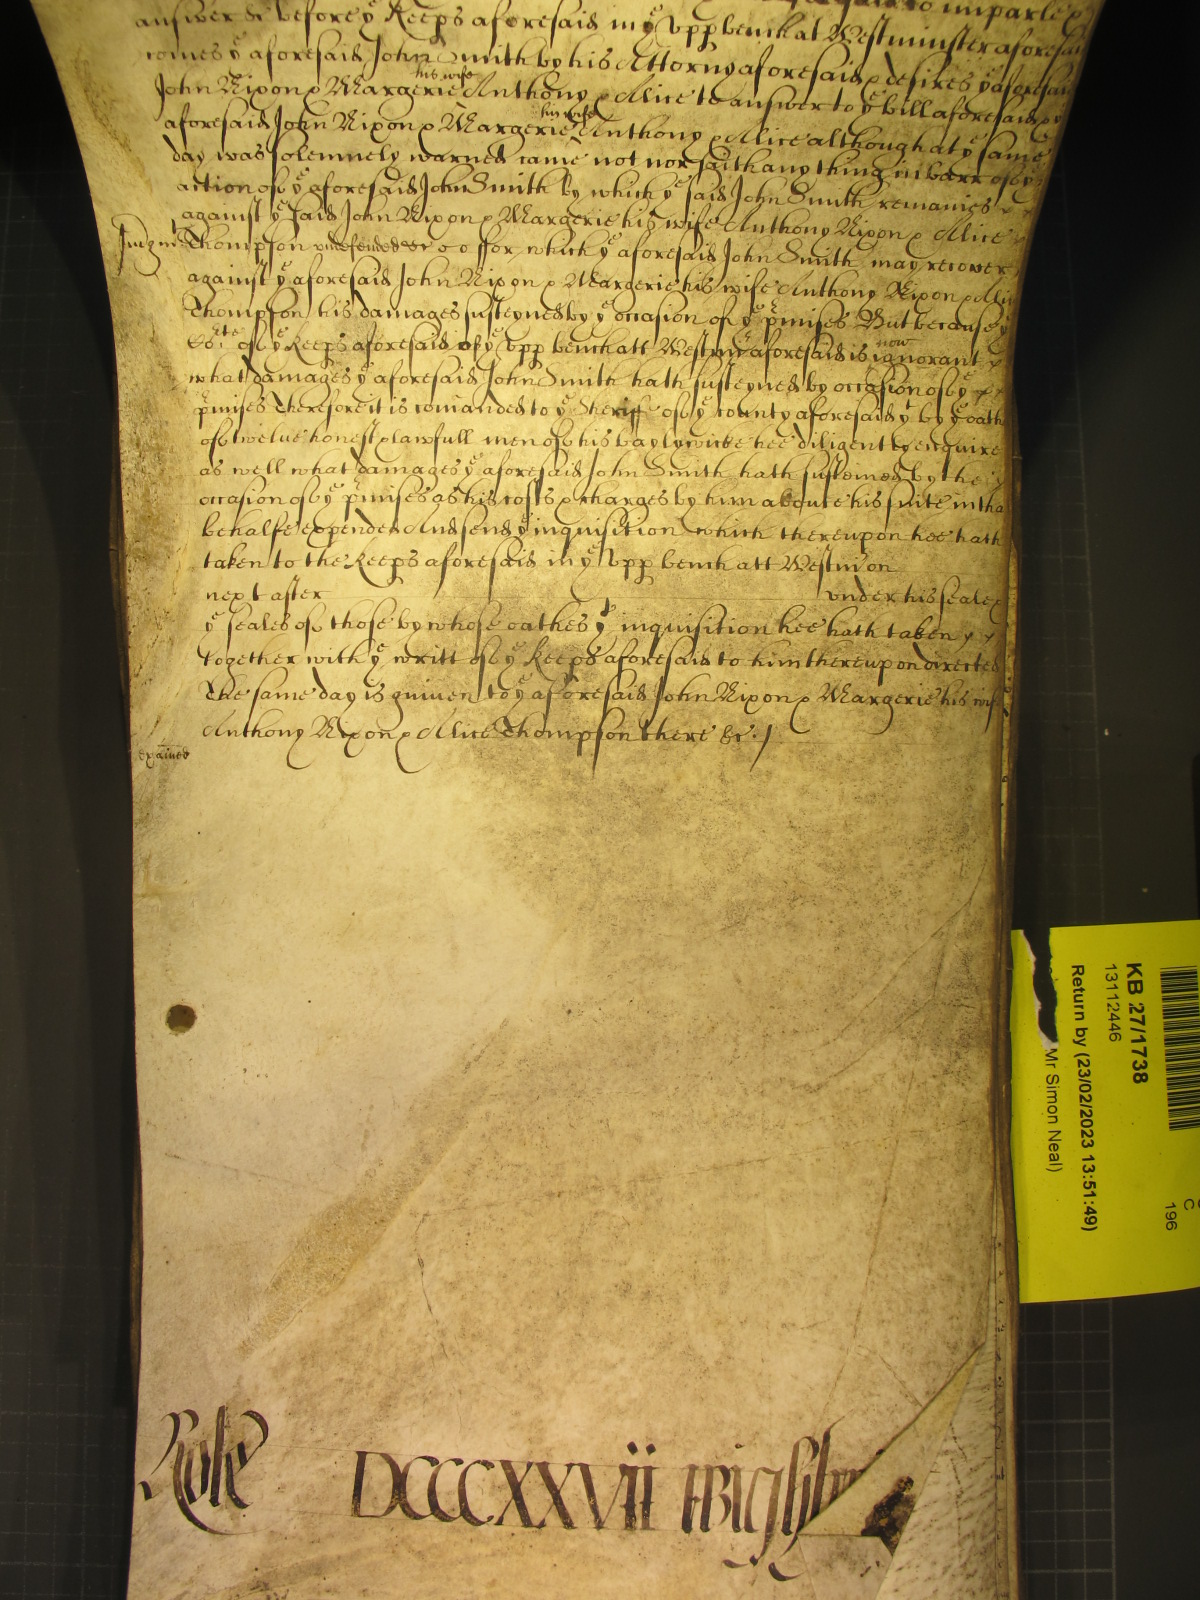 to imparle &
answer &c before ye Keeps aforesaid in ye vpp bench at Westminster aforesaid
comes ye aforesaid John Smith by his Attorny aforesaid & desires ye aforesaid
John Nixon & Margerie his wife Anthony & Alice to answer to ye bill aforesaid &
aforesaid John Nixon & Margerie his wife Anthony & Alice although at ye same
day was solemnely warned came not nor saith any thing in barr of ye
action of ye aforesaid John Smith by which ye said John Smith remaines
against ye said John Nixon & Margerie his wife Anthony Nixon & Alice
Judgmt
Thompson vndefended &c ffor which ye aforesaid John Smith may recover
against ye aforesaid John Nixon & Margerie his wife Anthony Nixon & Alice
Thompson his damages susteyned by ye occasion of ye pmises But because ye
of ye Keeps aforesaid of ye vpp bench att Westmr aforesaid is now ignorant
what damages ye aforesaid John Smith hath susteyned by occasion of ye
pmises Therefore it is comanded to ye Sheriff of ye county aforesaid yt by ye oath
of twelue honest & lawfull men of his baylywicke hee diligently enquire
as well what damages ye aforesaid John Smith hath susteined by the
occasion of ye pmises as his costs & charges by him aboute his suite in tha
behalfe expended And send ye inquisition which thereupon hee hath
taken to the Keeps aforesaid in ye vpp bench att Westm on
next after vnder his seale &
ye seales of those by whose oathes yt inquisition hee hath taken
together with ye writt of ye Keeps aforesaid to him thereupon directed
The same day is guiven to ye aforesaid John Nixon & Margerie his wife
Anthony Nixon & Alice Thompson there &c
exaied
Role DCCCXXVII
KB 27/1738
13112446
Return by (23/02/2023 13:51:49)
Mr Simon Neal)
C
196